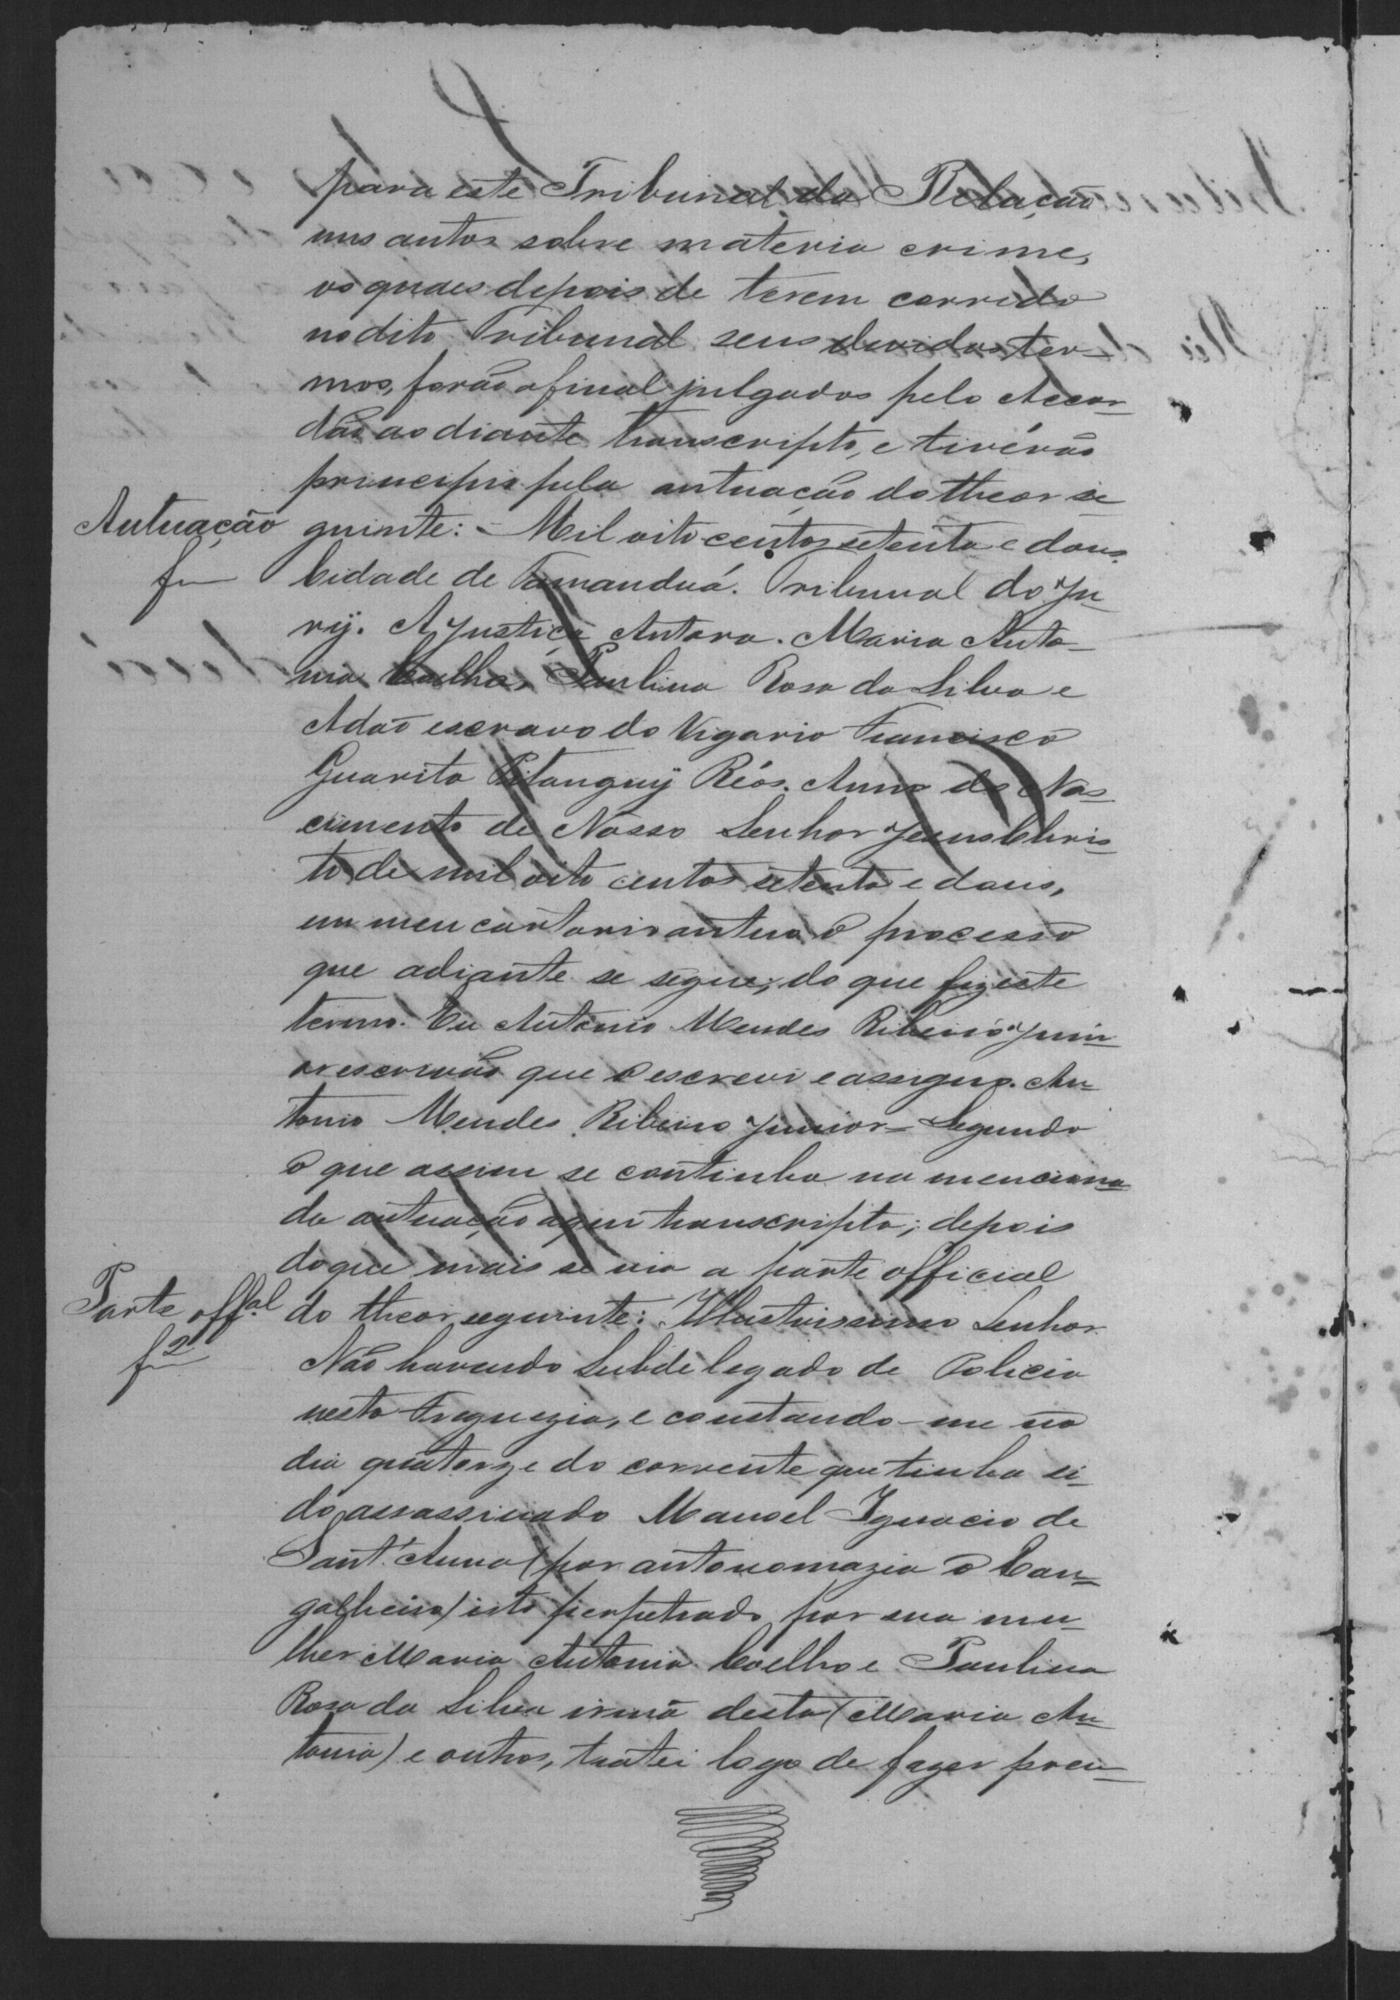 para este Tribunal da Relação
uns autos sobre materia crime,
os quaes depois de terem corrido
no dito Tribunal seus devidos ter-
mos, forão afinal julgados pelo Accor-
dão ao diante transcripto, e tivérão
principio pela autuação do theor se
Autuação
f
guinte: - Mil oito centos setenta e dous.
Cidade de Tamanduá. Tribunal do Ju-
ry. A Justiça Autora. Maria Anto-
nia Coelho, Paulina Rosa da Silva e
Adão escravo do Vigario Francisco
Guarita Pitanguy Réos. Anno do Nas-
cimento de Nosso Senhor Jesus Chris-
to de mil oito centos setenta e dous,
em meu cartorio autuo o processo
que adiante se segue; do que fiz este
termo. Eu Antonio Mendes Ribeiro Juni-
or escrivão que o escrevi e assigno. An-
tonio Mendes Ribeiro Junior = Segundo
o que assim se continha na menciona-
da autuação aqui transcripta; depois
do que mais se via a parte official
Parte offal
f 2
do theor seguinte: Illustrissimo Senhor
Não havendo Subdelegado de Policia
nesta Freguezia, e constando-me no
dia quatorze do corrente que tinha si-
do assassinado Manoel Ignacio de
Sant'Anna (por antonomazia o Can-
galheiro) isto perpetrado por sua mu-
lher Maria Antonia Coelho e Paulina
Rosa da Silva irmã desta (Maria An-
tonia) e outros, tratei logo de fazer pren-